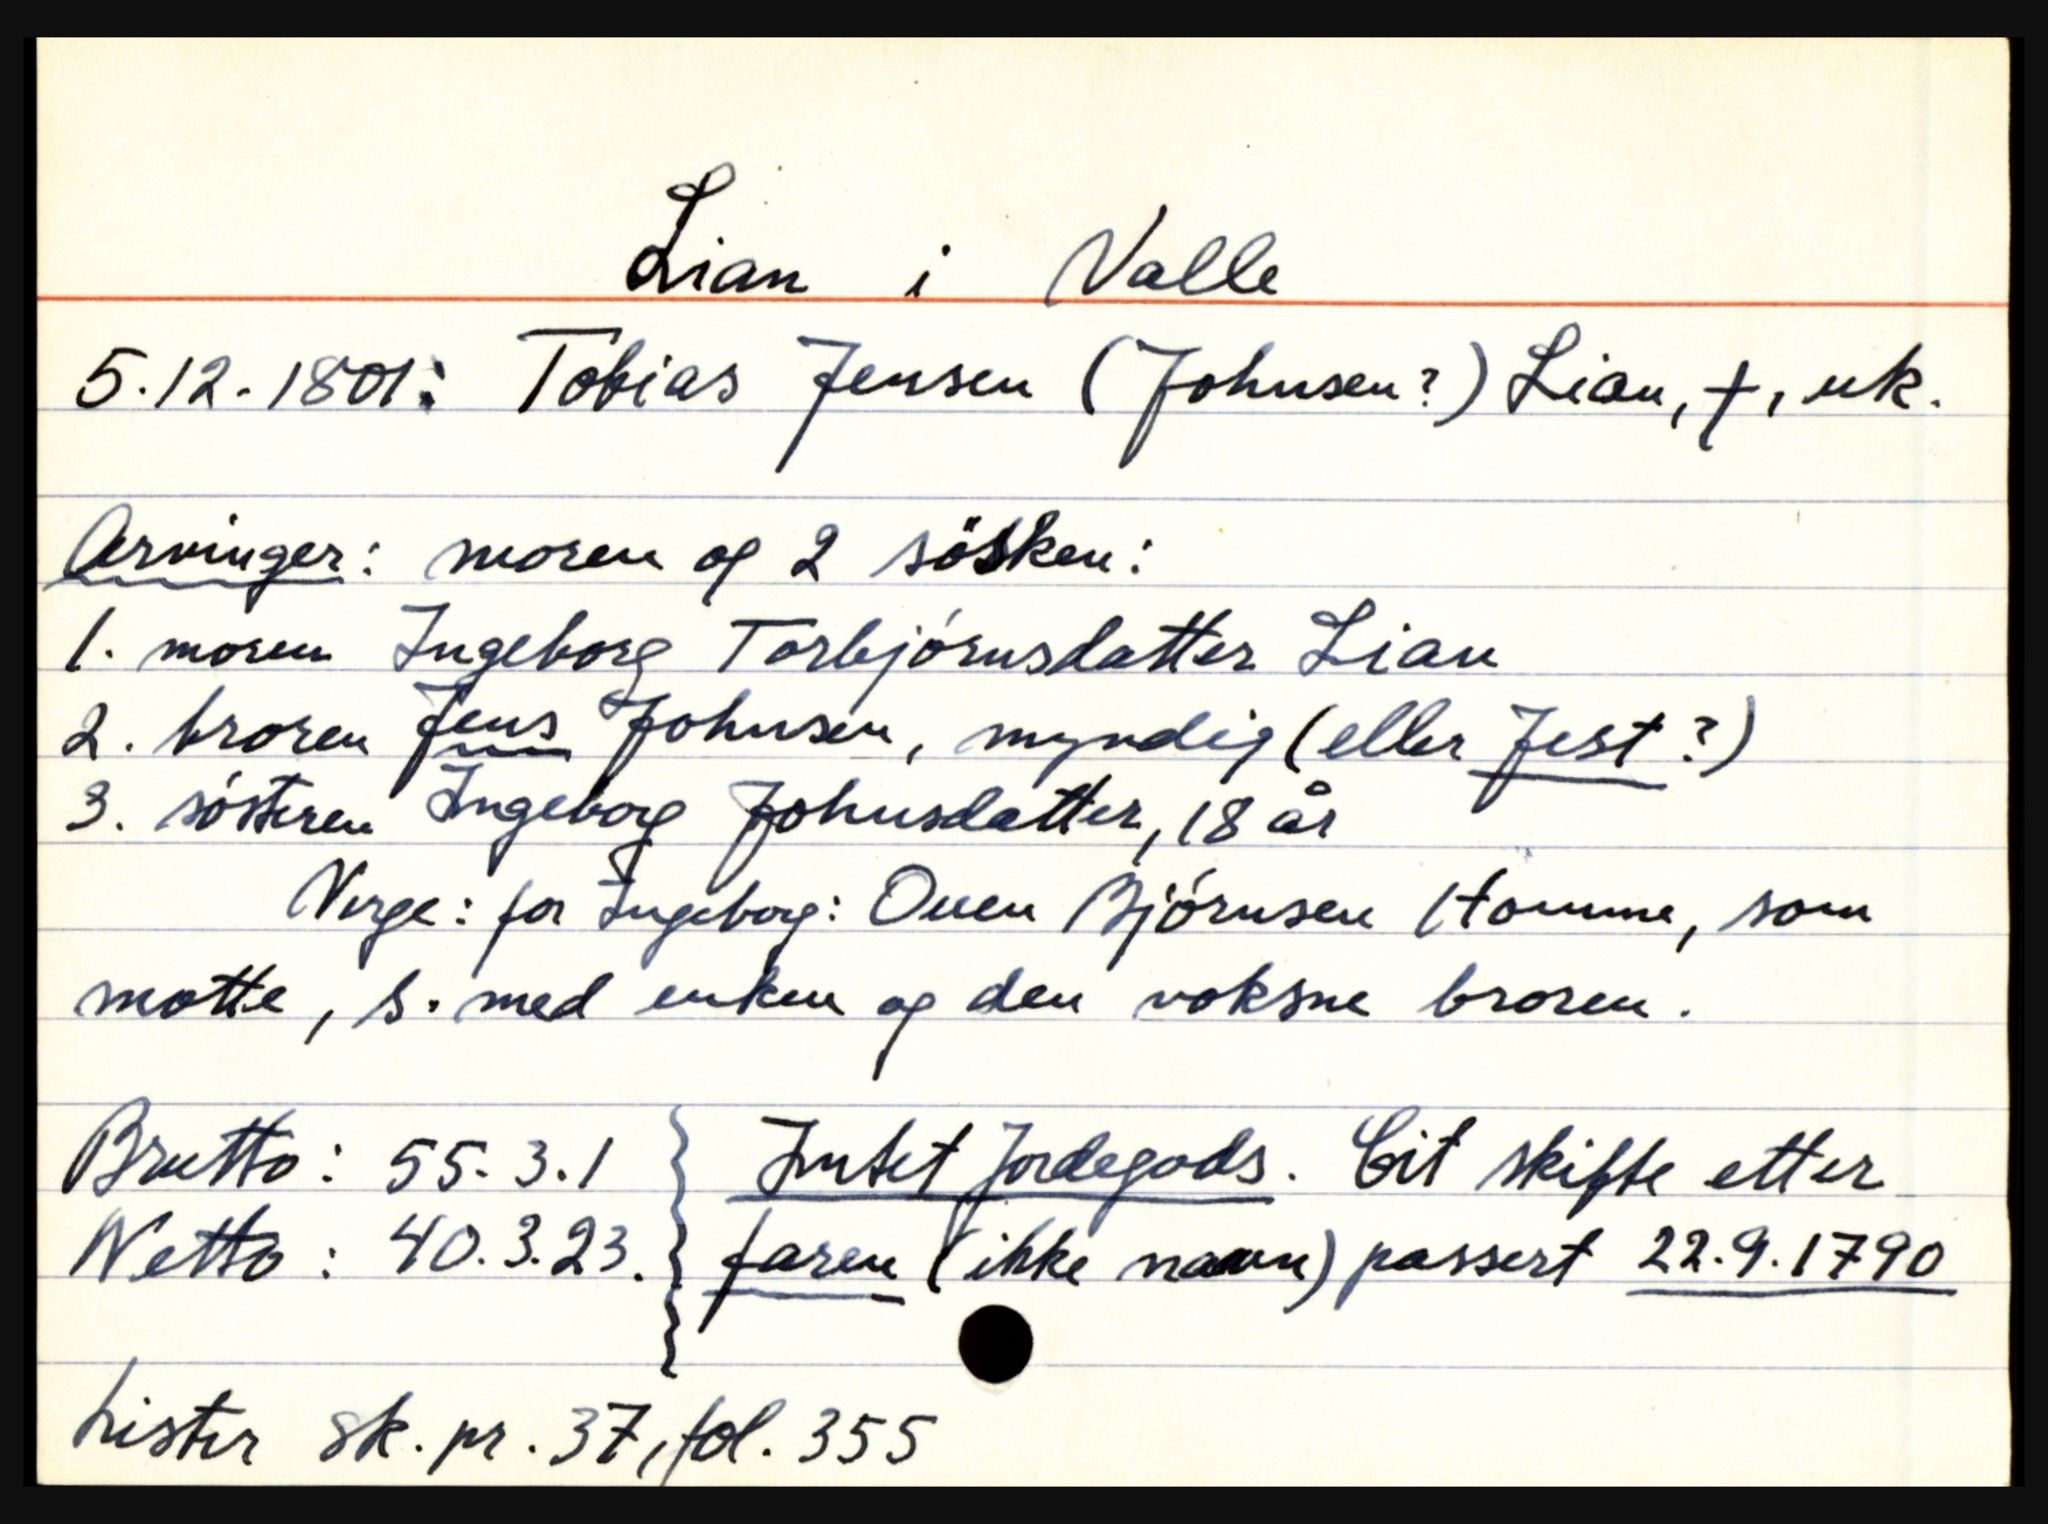 Lian i Valle
5.12.1801: Tobias Jensen (Johnsen?) Lian, †, uk.
Arvinger: moren og 2 sösken:
1. moren Ingeborg Torbjórnsdatter Lian
2. broren Jens Johnsen, myndig (eller Jest?)
3. sósteren Ingeborg Johnsdatter, 18 år
Verge: for Ingeborg: Ouen Bjórnsen Homme, som
møtte, s. med enken og den voksne broren.
Brutto: 55.3.1 } Intet Jordegods. Cit skifte etter
Netto: 40.3.23. } faren (ikke navn) passert 22.9.1790
Lister sk.pr. 37, fol. 355